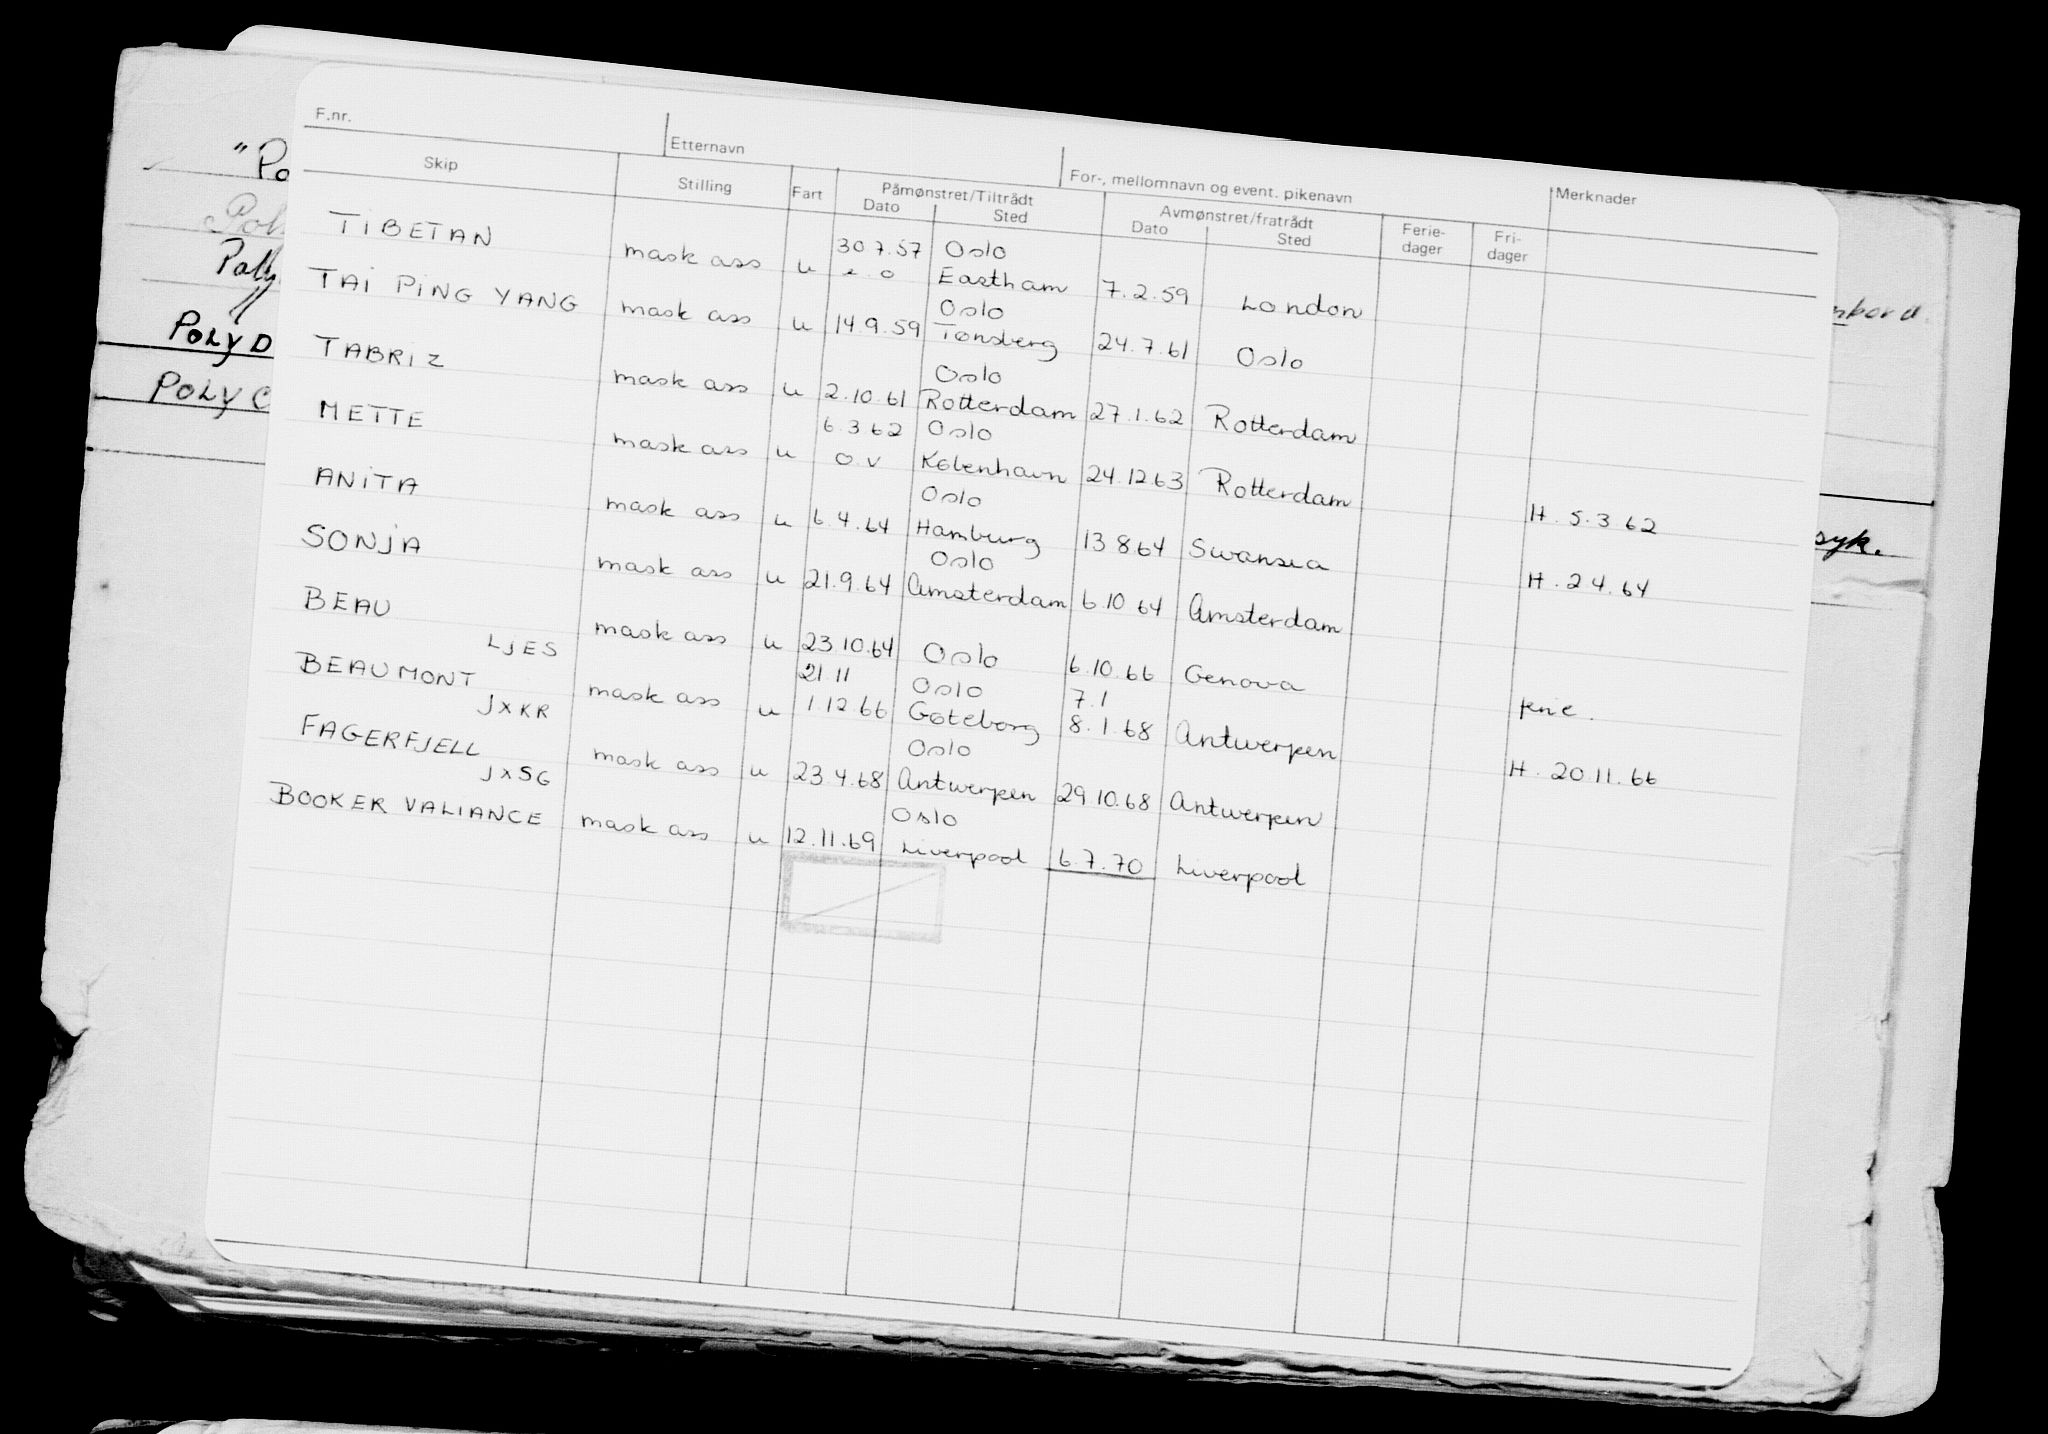 F.nr. Etternavn For-, mellomnavn og event. pikenavn Merknader
Skip Stilling Fart Påmønstret/Tiltrådt Avmønstret/fratrådt Ferie-dager Fri-dager
Dato Sted Dato Sted
TIBETAN mask ass u 30.7.57 Oslo
Eastham 7.2.59 London
TAI PING YANG mask ass u 14.9.59 Oslo
Tønsberg 24.7.61 Oslo
TABRIZ mask ass u 2.10.61 Oslo
Rotterdam 27.1.62 Rotterdam
METTE mask ass u 6.3.62 Oslo
o.v København 24.12.63 Rotterdam H. 5.3.62
ANITA mask ass u 6.4.64 Oslo
Hamburg 13.8.64 Swansea H. 2.4.64
SONJA mask ass u 21.9.64 Oslo
Amsterdam 6.10.64 Amsterdam
BEAU mask ass u 23.10.64 Oslo 6.10.66 Genova ferie.
LJES
BEAUMONT mask ass u 21.11 Oslo 7.1
JXKR 1.12.66 Gøteborg 8.1.68 Antwerpen H. 20.11.66
FAGERFJELL mask ass u 23.4.68 Oslo
JXSG Antwerpen 29.10.68 Antwerpen
BOOKER VALIANCE mask ass u 12.11.69 Oslo
Liverpool 6.7.70 Liverpool
"Po
Poly
POLYD
POLYC
syk.